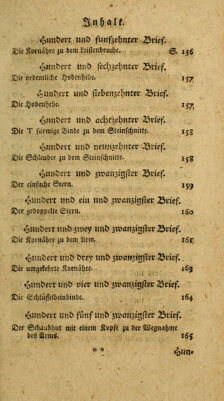 Inhalt.
Hundert und funfzehnter Brief.
Die Kornähre zu dem Leistenbruche. S. 156
Hundert und sechzehnter Brief.
Die ordentliche Hodenhebe. 157
Hundert und siebenzehnter Brief.
Die Hodenhebe. 157
Hundert und achtzehnter Brief.
Die T förmige Binde zu dem Steinschnitte. 158
Hundert und neunzehnter Brief.
Die Schleuder zu dem Steinschnitte. 158
Hundert und zwanzigster Brief.
Der einfache Stern. 159
Hundert und ein und zwanzigster Brief.
Der gedoppelte Stern. 160
Hundert und zwey und zwanzigster Brief.
Die Kornähre zu dem Arm. 161
Hundert und drey und zwanzigster Brief.
Die umgekehrte Kornähre. 163
Hundert und vier und zwanzigster Brief.
Die Schlüsselbeinbinde. 164
Hundert und fünf und zwanzigster Brief.
Der Schaubhut mit einem Kopfe zu der Wegnahme
des Arms. 165
* * Hun-